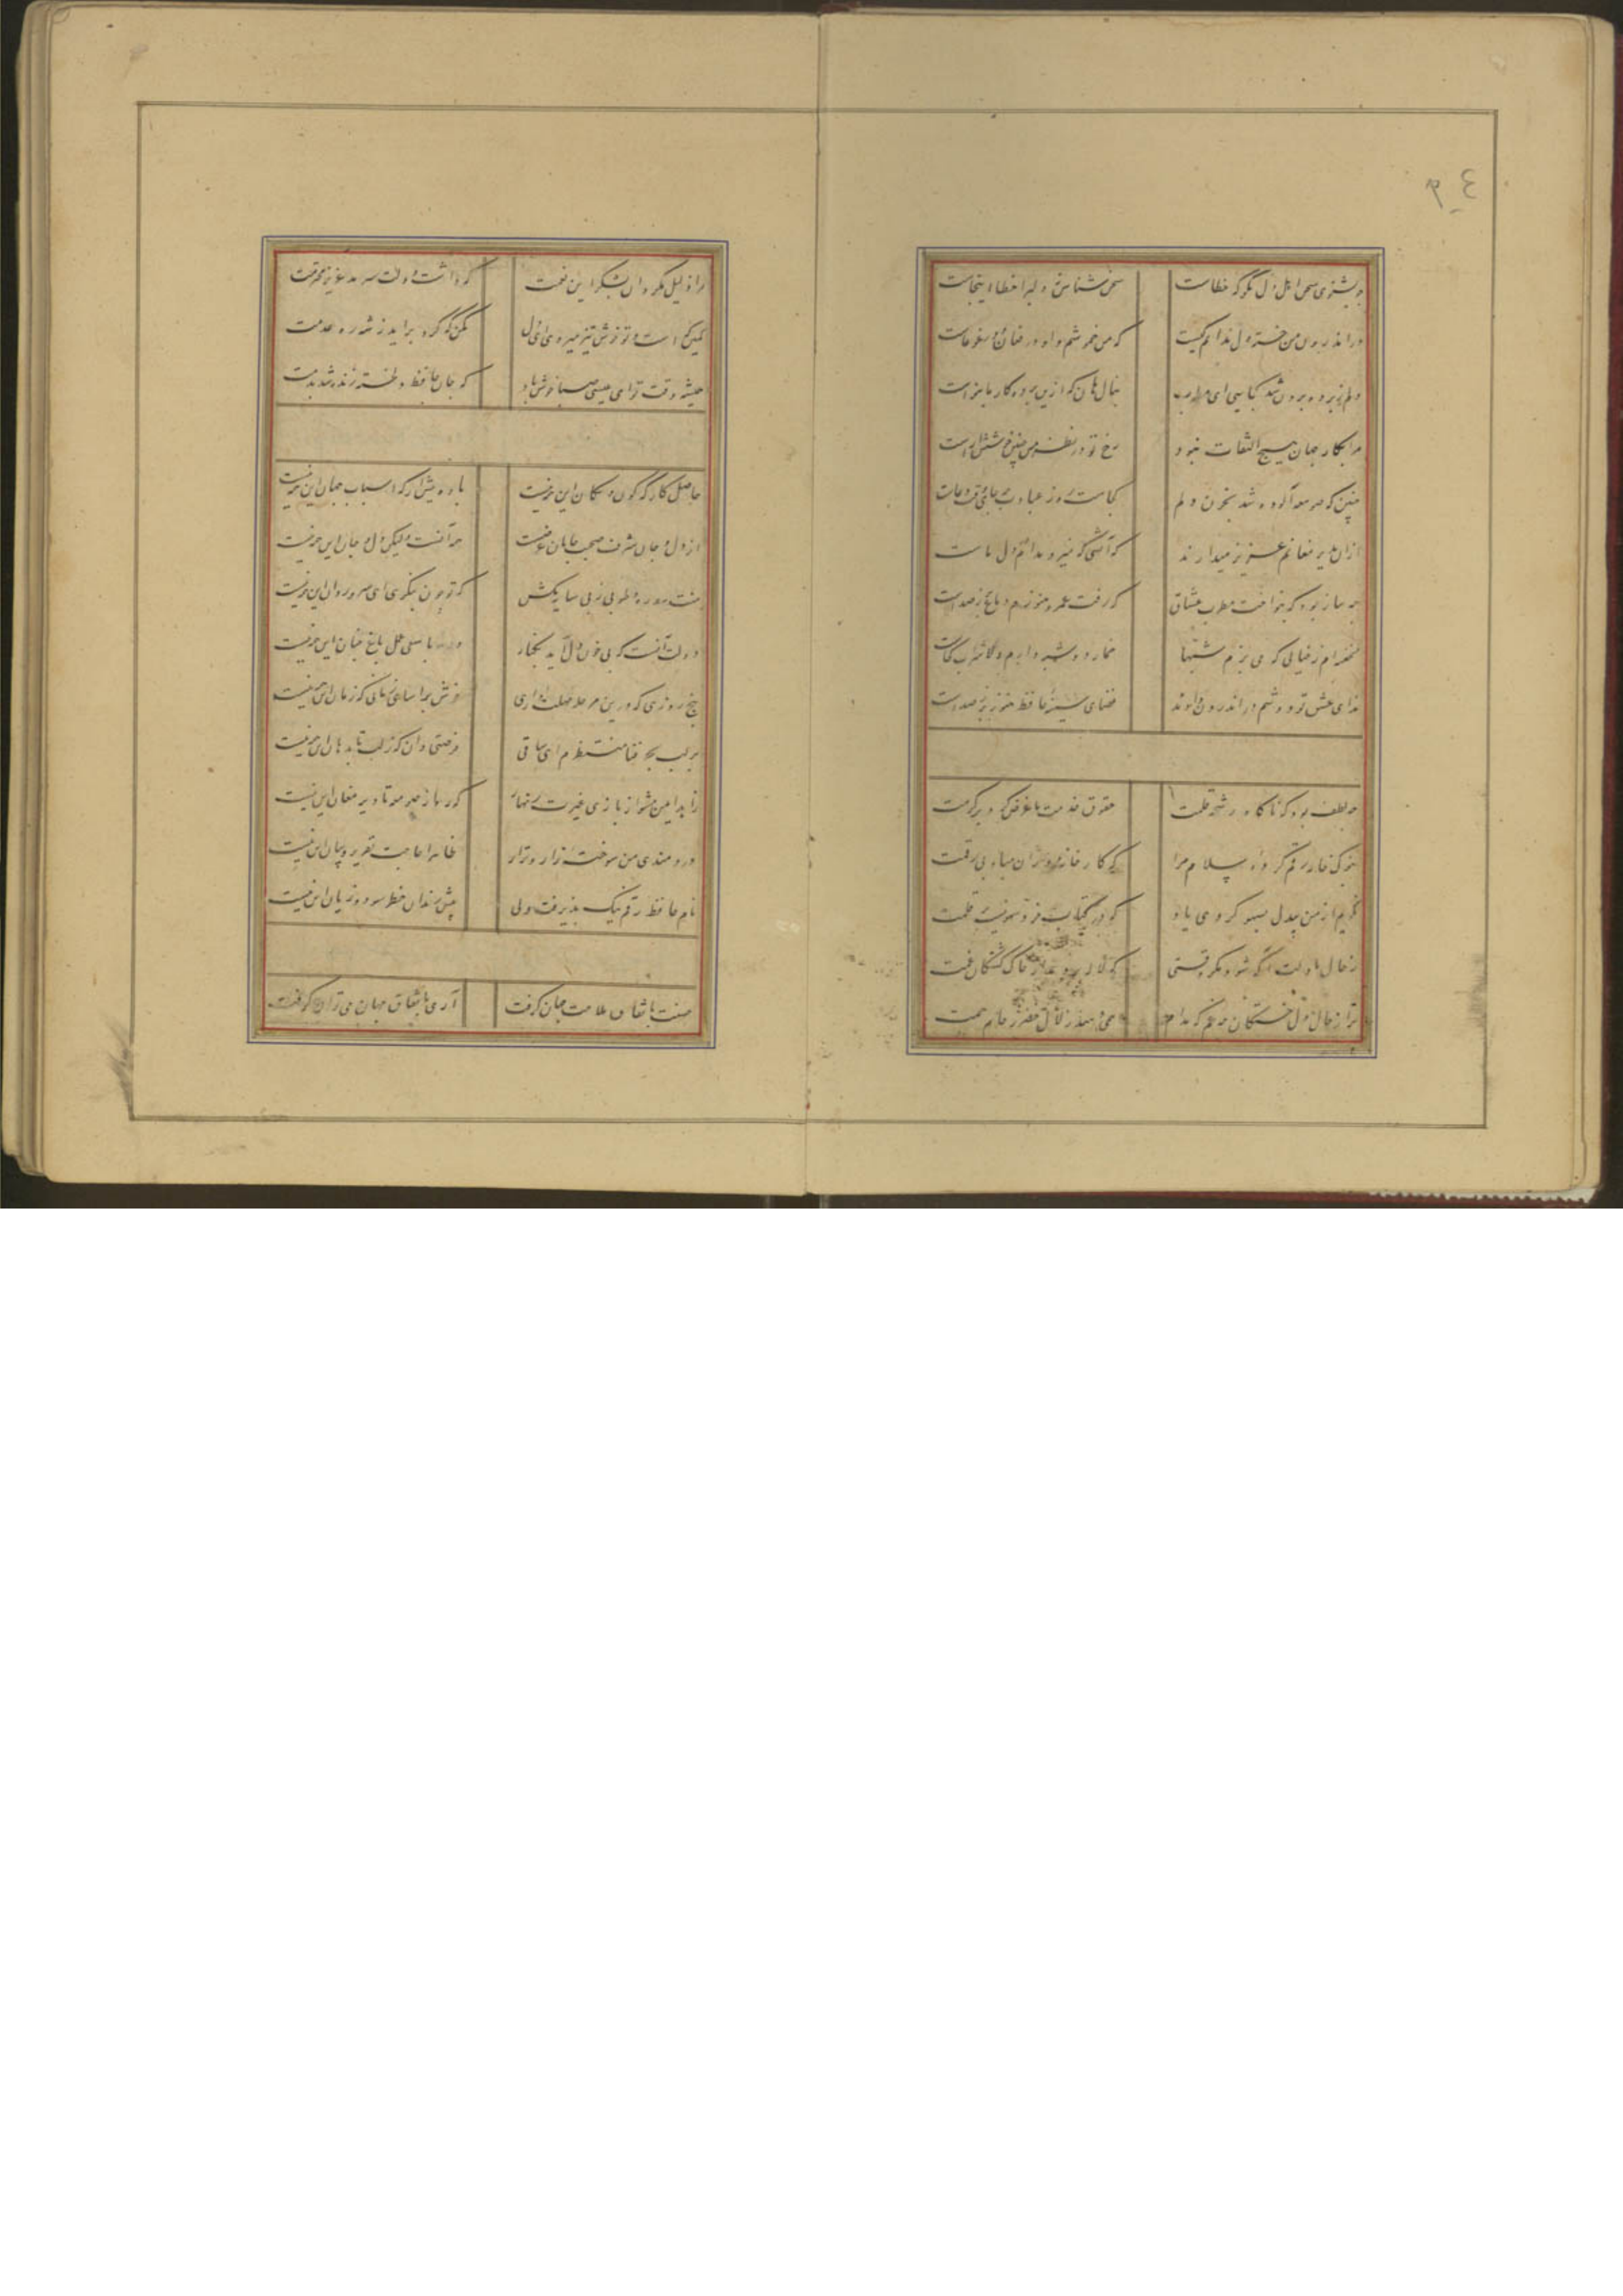 چو بشنوی سخن اهل دل مگو که خطاست سخن شناس نهٔ دلبرا خطا اینجاست
در اندرون من خسته دل ندانم کیست که من خموشم و او در فغان و در غوغاست
دلم ز پرده برون شد کجایی ای مطرب بنال هان که ازین پرده کار ما بنواست
مرا بکار جهان هیچ التفات نبود رخ تو در نظر من چنین خوشش آراست
چنین که صومعه آلوده شد بخون دلم
ازان بدیر مغانم عزیز میدارند که آتشی که نمیرد مدام در دل ماست
چه ساز بود که بنواخت مطرب عشاق که رفت عمر و هنوزم دماغ پر صداست
نخفته‌ام ز خیالی که می پزم شبها خمار دوشینه دارم شرابخانه کجاست
ندای عشق تو دوشم در اندرون دادند فضای سینهٔ حافظ هنوز پر ز صداست
چه لطف بود که ناگاه رشحهٔ قلمت حقوق خدمت ما عرض کرد بر کرمت
بنوک خامه رقم کردهٔ سلام مرا که کارخانهٔ دوران مباد بی رقمت
نگویم از من بیدل بسهو کردی یاد که در حساب خرد نیست سهو بر قلمت
ز حال ما دلت آگه شود مگر وقتی که لاله بردمد از خاک کشتگان غمت
ترا ز حال دل خستگان چه غم که مدام همی دهند زلال خضر ز جام جمت
مرا ذلیل مگردان بشکر این نعمت که داشت دولت سرمد عزیز و محترمت
کمین گه است و تو خوش تیز میروی ای دل مکن که گرد برآید ز شه ره عدمت
همیشه وقت تو ای عیسی صبا خوش باد که جان حافظ دلخسته زنده شد بدمت
حاصل کارگه کون و مکان این همه نیست باده پیش آر که اسباب جهان این همه نیست
از دل و جان شرف صحبت جانان غرضست همه آنست وگرنه دل و جان این همه نیست
منت سدره و طوبی ز پی سایه مکش که چو خوش بنگری ای سرو روان این همه نیست
دولت آنست که بی خون دل آید بکنار ورنه با سعی عمل باغ جنان این همه نیست
پنج روزی که درین مرحله مهلت داری خوش بیاسای زمانی که زمان این همه نیست
بر لب بحر فنا منتظرم ای ساقی فرصتی دان که ز لب تا بدهان این همه نیست
زاهد ایمن مشو از بازی غیرت زنهار که ره از صومعه تا دیر مغان این همه نیست
دردمندی من سوختهٔ زار و نزار ظاهرا حاجت تقریر و بیان این همه نیست
نام حافظ رقم نیک پذیرفت ولی پیش رندان خط سود و زیان این همه نیست
حسنت باتفاق ملاحت جهان گرفت آری باتفاق جهان می توان گرفت